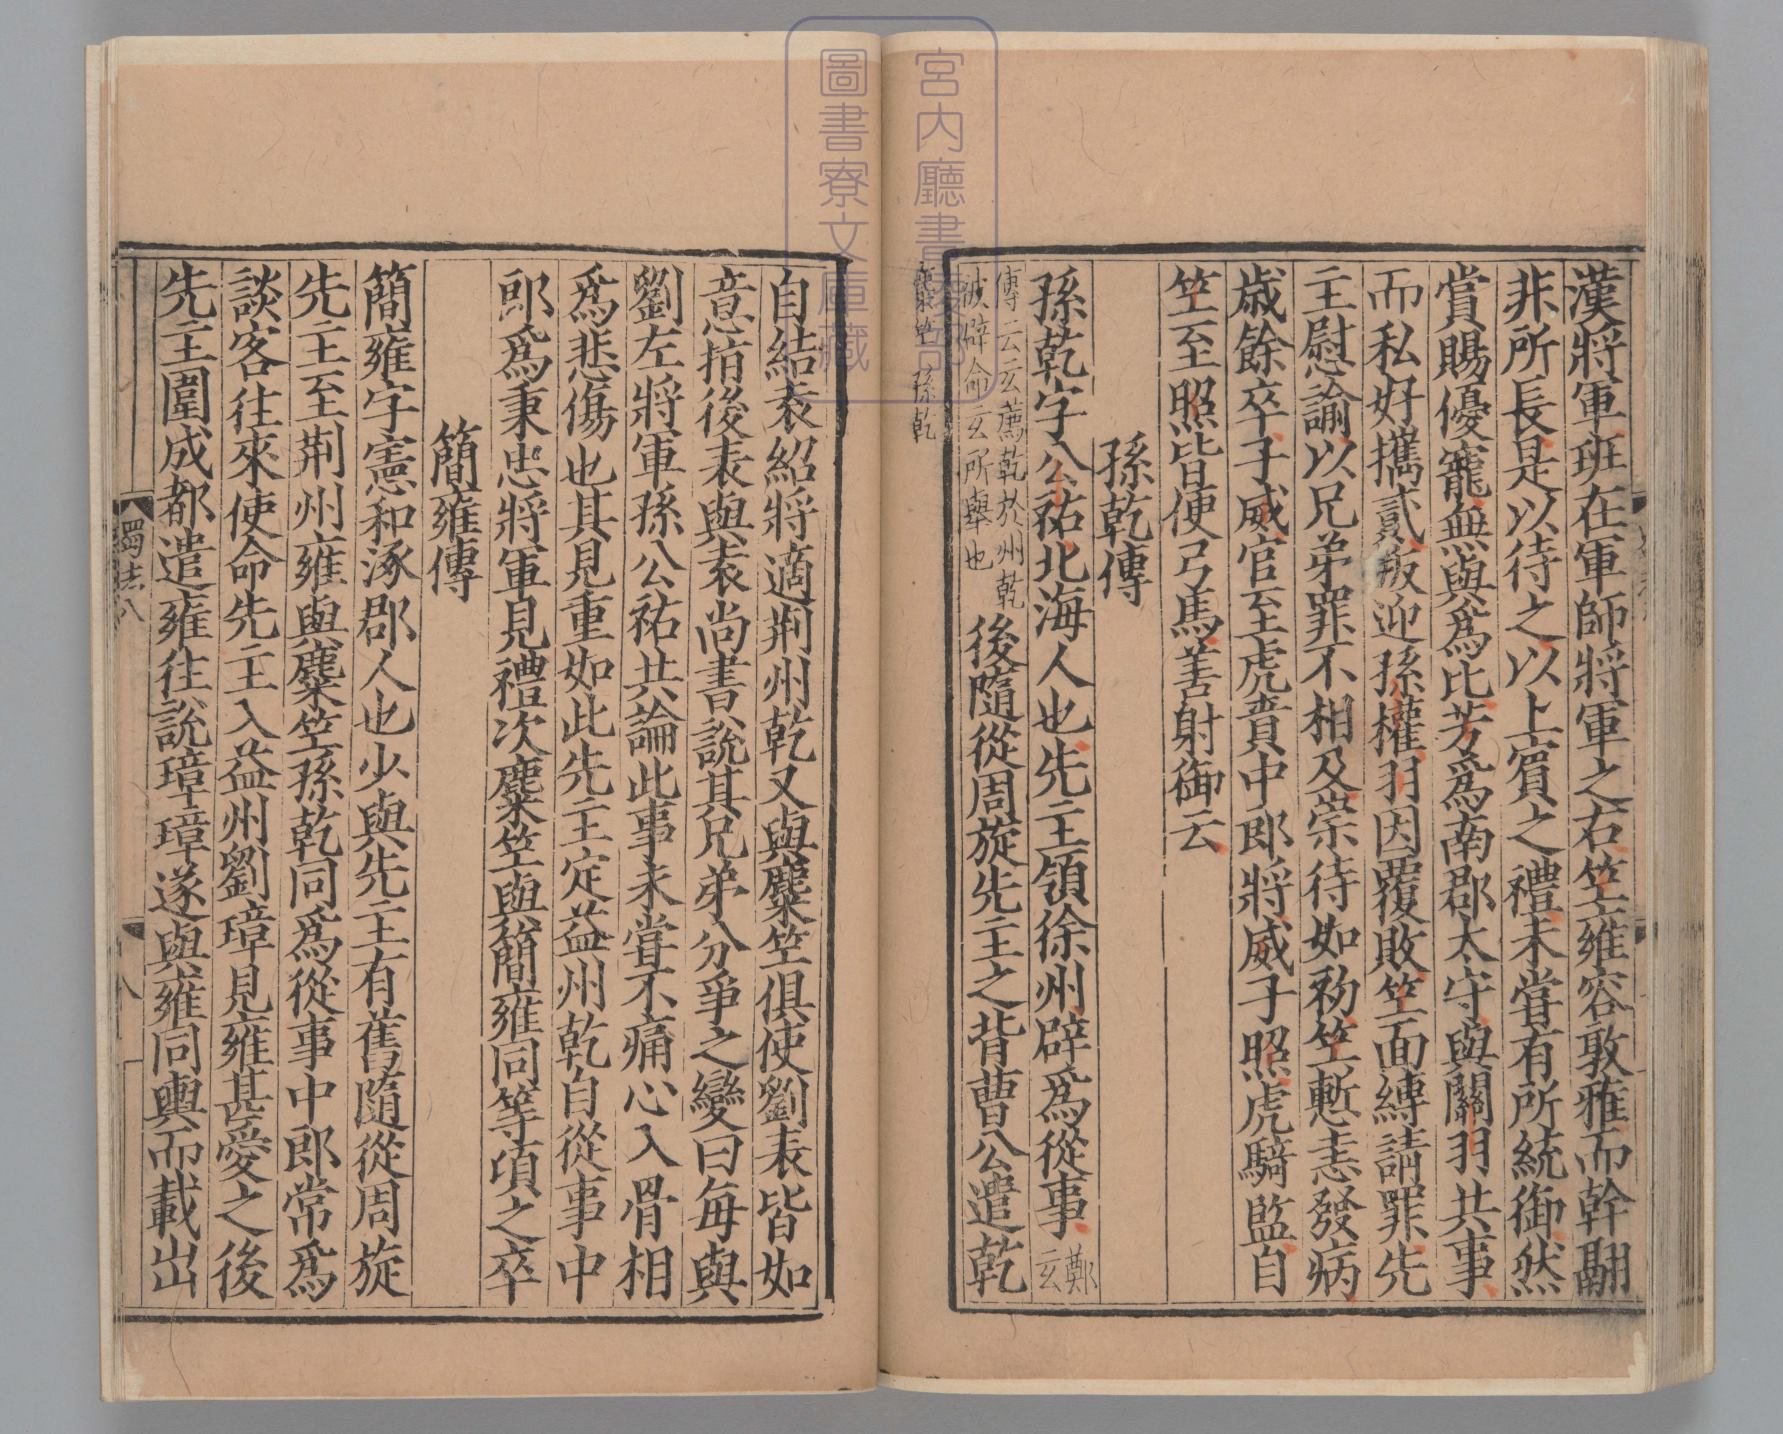 漢將軍班在軍師將軍之右竺雍容敦雅而幹翮
非所長是以待之以上賔之禮未嘗有所統御然
賞賜優寵無與爲比芳爲南郡太守與關羽共事
而私好攜貳叛迎孫權羽因覆敗竺面縛請罪先
主慰諭以兄弟罪不相及崇待如初竺慙恚發病
歳餘卒子威官至虎賁中郎將威子照虎騎監自
竺至照皆便弓馬善射御云
孫乾傳
孫乾字公祐北海人也先主領徐州辟爲從事鄭玄
傳云玄薦乾於州乾
被辟命玄所舉也
後隨從周旋先主之背曹公遣乾
孫乾
自結袁紹將適荆州乾又與麋竺俱使劉表皆如
意㫖後表與袁尚書說其兄弟分爭之變曰每與
劉左將軍孫公祐共論此事未嘗不痛心入骨相
爲悲傷也其見重如此先主定益州乾自從事中
郎爲秉忠將軍見禮次麋竺與簡雍同等頃之卒
簡雍傳
簡雍字憲和涿郡人也少與先主有舊隨從周旋
先主至荆州雍與麋竺孫乾同爲從事中郎常爲
談客往來使命先主入益州劉璋見雍甚愛之後
先主圍成都遣雍往說璋璋遂與雍同輿而載出
蜀志八
八
宮内廳書陵部
圖書寮文庫藏